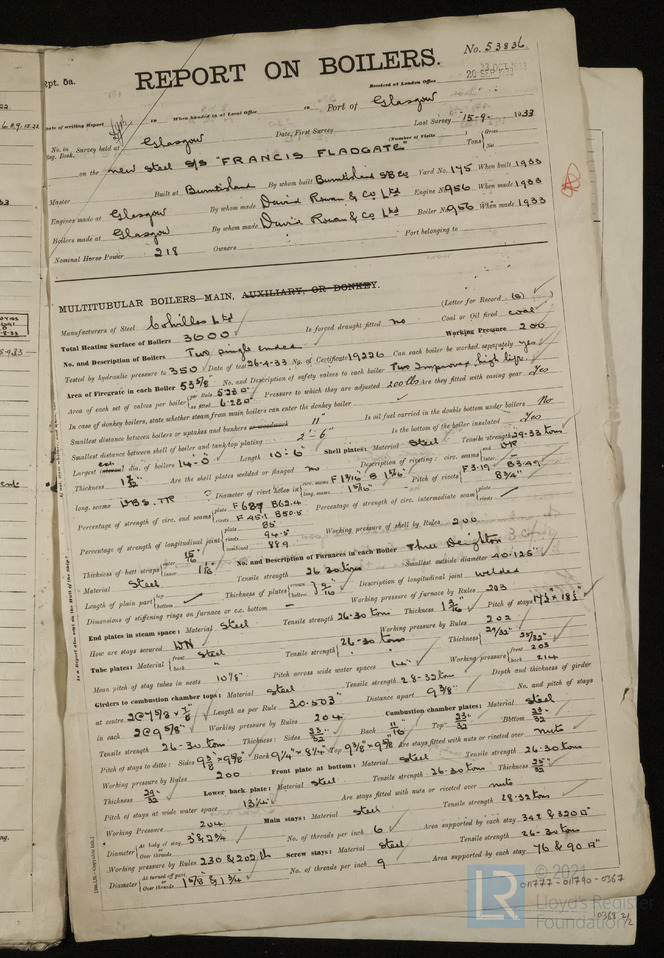 Rpt. 5a.
No. 53836
REPORT ON BOILERS.
23 OCT 1933
20 SEP 1933
Received at London Office
Date of writing Report 19 When handed in at Local Office 19 Port of Glasgow
No. in Survey held at Glasgow Date, First Survey Last Survey 15-9- 1933
Reg. Book. (Number of Visits)
on the new steel S/S "FRANCIS FLADGATE" Tons Gross Net
Master Built at Burntisland By whom built Burntisland SB Co Yard No. 175 When built 1933
Engines made at Glasgow By whom made David Rowan & Co Ltd Engine No. 956 When made 1933
Boilers made at Glasgow By whom made David Rowan & Co Ltd Boiler No. 956 When made 1933
Nominal Horse Power 218 Owners Port belonging to
MULTITUBULAR BOILERS—MAIN, AUXILIARY, OR DONKEY.
Manufacturers of Steel Colvilles Ltd (Letter for Record (S))
Total Heating Surface of Boilers 3600 Is forced draught fitted no Coal or Oil fired coal
No. and Description of Boilers Two single ended Working Pressure 200
Tested by hydraulic pressure to 350 Date of test 26-4-33 No. of Certificate 19226 Can each boiler be worked separately yes
Area of Firegrate in each Boiler 53 5/8 No. and Description of safety valves to each boiler Two Improved high lift
Area of each set of valves per boiler per Rule as fitted 6.280 Pressure to which they are adjusted 200 lbs Are they fitted with easing gear Yes
In case of donkey boilers, state whether steam from main boilers can enter the donkey boiler
Smallest distance between boilers or uptakes and bunkers or woodwork 11" Is oil fuel carried in the double bottom under boilers No
Smallest distance between shell of boiler and tank top plating 2'-6" Is the bottom of the boiler insulated Yes
Largest dia. of boilers 14'-0" Length 10'-6" Shell plates: Material Steel Tensile strength 29-33 tons
Thickness Are the shell plates welded or flanged no Description of riveting: circ. seams end DR
long. seams DBS. TR Diameter of rivet holes in circ. seams F 1 3/16 B 1 5/16" long. seams 1 5/16" Pitch of rivets F 3.19 B 3.49 8 3/4"
Percentage of strength of circ. end seams plate rivets F 45.1 B 50.5 Percentage of strength of circ. intermediate seam plate rivets
Percentage of strength of longitudinal joint plate 85 rivets 94.5 combined 88.9 Working pressure of shell by Rules 200
Thickness of butt straps outer 15/16 inner 1 1/16 No. and Description of Furnaces in each Boiler Three Deighton
Material Steel Tensile strength 26-30 tons Smallest outside diameter 40.125
Length of plain part top bottom Thickness of plates crown bottom 9/16 Description of longitudinal joint welded
Dimensions of stiffening rings on furnace or c.c. bottom Working pressure of furnace by Rules 203
End plates in steam space: Material Steel Tensile strength 26-30 tons Thickness 1 3/16" Pitch of stays 17 1/2" x 18 1/2"
How are stays secured DN Working pressure by Rules 202
Tube plates: Material front back Steel Tensile strength 26-30 tons Thickness 29/32" 25/32"
Mean pitch of stay tubes in nests 10 1/8" Pitch across wide water spaces 14" Working pressure front 203 back 214
Girders to combustion chamber tops: Material Steel Tensile strength 28-32 tons Depth and thickness of girder
at centre 2 @ 7 5/8 x 7/8 Length as per Rule 30.503" Distance apart 9 3/8" No. and pitch of stays
in each 2 @ 9 5/8" Working pressure by Rules 204 Combustion chamber plates: Material Steel
Tensile strength 26-30 tons Thickness: Sides 23/32 Back 11/16 Top 23/32 Bottom 23/32
Pitch of stays to ditto: Sides 9 3/8 x 9 5/8 Back 9 1/4" x 8 1/4" Top 9 3/8 x 9 5/8 Are stays fitted with nuts or riveted over nuts
Working pressure by Rules 200 Front plate at bottom: Material Steel Tensile strength 26-30 tons
Thickness 29/32 Lower back plate: Material Steel Tensile strength 26-30 tons Thickness 25/32
Pitch of stays at wide water space 13 1/4" Are stays fitted with nuts or riveted over nuts
Working Pressure 204 Main stays: Material Steel Tensile strength 28-32 tons
Diameter At body of stay, Over threads 3" & 2 3/4 No. of threads per inch 6 Area supported by each stay 342 & 320 □"
Working pressure by Rules 230 & 202 lb Screw stays: Material Steel Tensile strength 26-30 tons
Diameter At turned off part, Over threads 1 5/8 & 1 3/4 No. of threads per inch 9 Area supported by each stay 76 & 90 □"
LR
© 2021
Lloyd's Register
Foundation
011777-011790-0367
0368 2/2